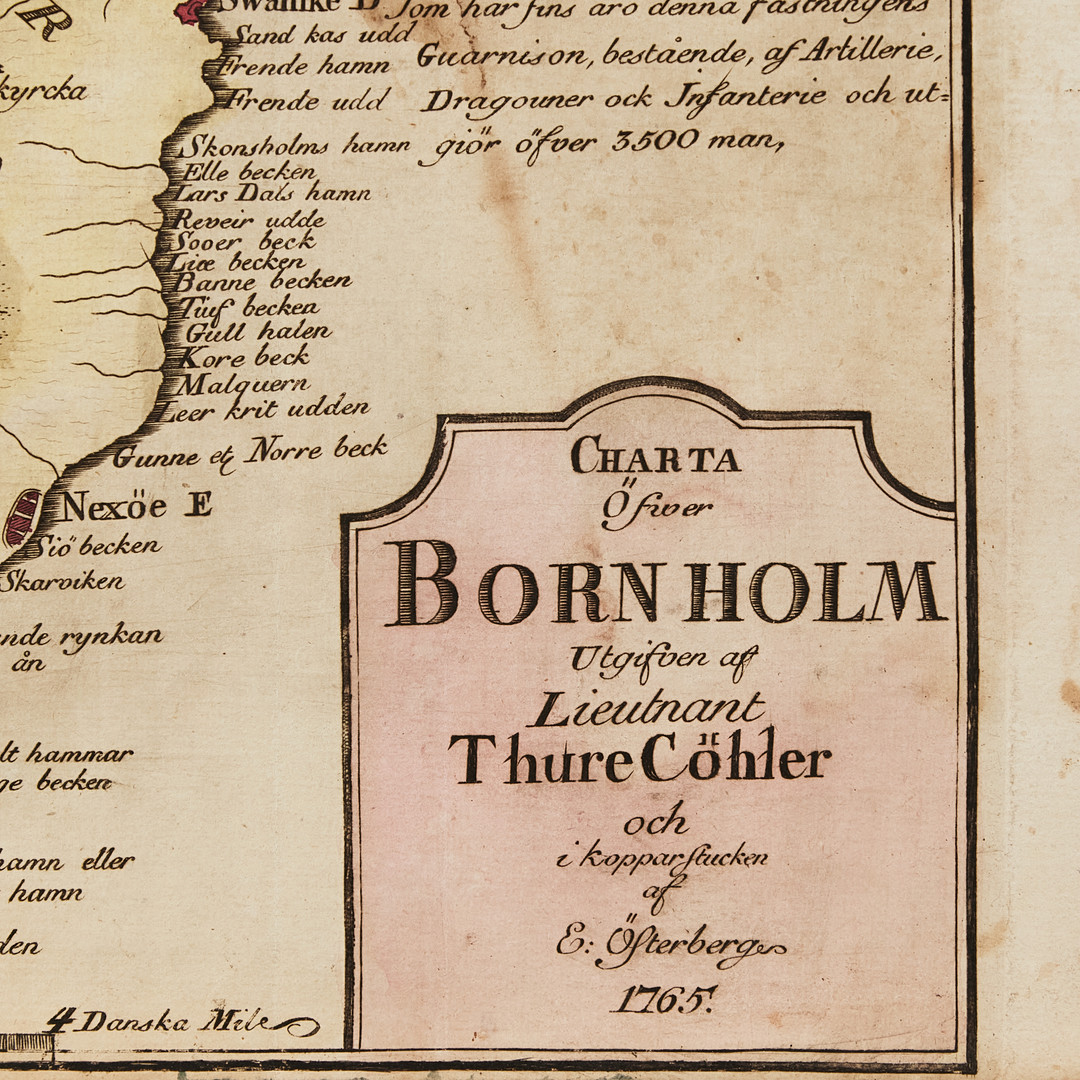 R
kyrcka
Swanike D
Sand kas udd
Frende hamn
Frende udd
Skonsholms hamn
Elle becken
Lars Dals hamn
Reveir udde
Sooer beck
Lice becken
Banne becken
Tuf becken
Gull halen
Kore beck
Malquern
Leer krit udden
Gunne etz Norre beck
Nexöe E
Siö becken
Skarviken
nde rynkan
ån
lt hammar
ge becken
hamn eller
hamn
den
4 Danska Mile
som här fins äro denna fästningens
Guarnison, bestående, af Artillerie,
Dragouner ock Infanterie och ut=
giör öfver 3500 man,
CHARTA
Öfwer
BORNHOLM
Utgifven af
Lieutnant
Thure Cöhler
och
i kopparstucken
af
E: Österberg
1765.